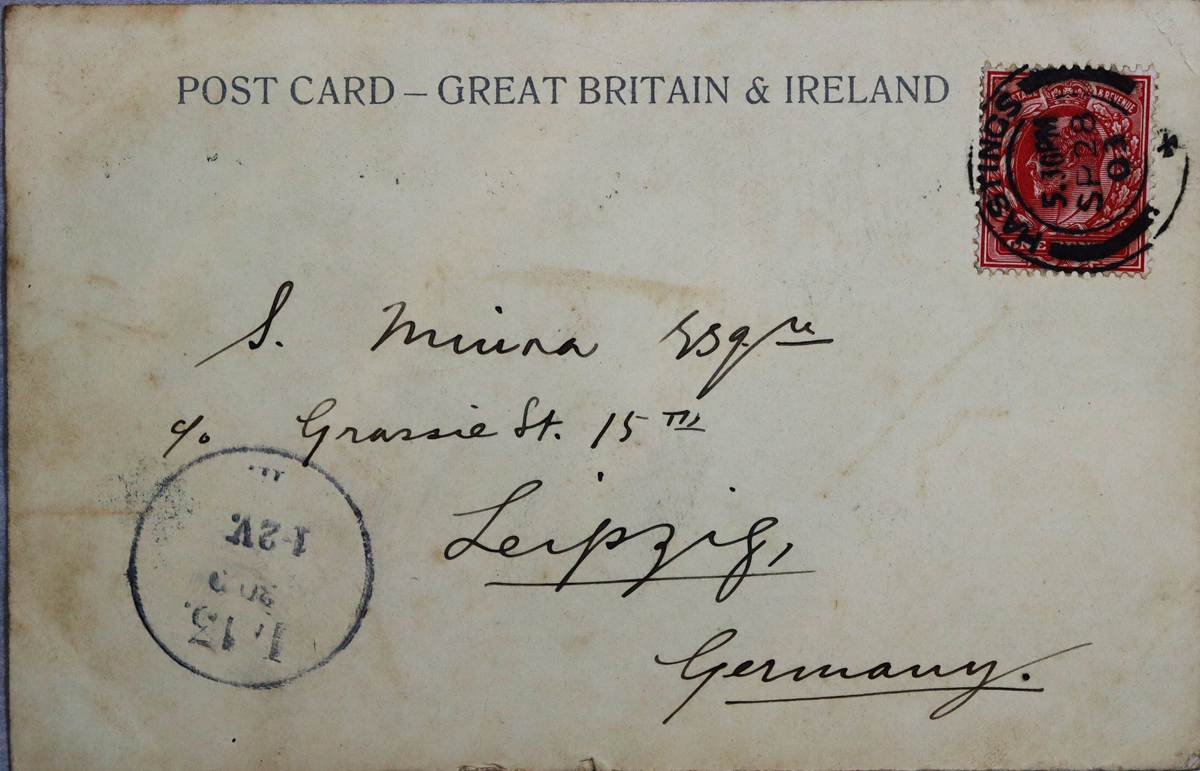 POST CARD – GREAT BRITAIN & IRELAND
& REVENUE
HASTINGS
5.30PM
SP 28
03
ONE
S. Miura Esqre
c/o Grassie St. 15TH
Leipzig,
Germany.
1-2V.
L. 13.